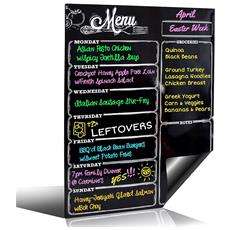 Menu
MONDAY
Asian Pesto Chicken
w/Spicy Tortilla Soup
TUESDAY
Crockpot Honey Apple Pork Loin
w/Fresh Spinach Salad
WEDNESDAY
Italian Sausage Stir-Fry
THURSDAY
LEFTOVERS
FRIDAY
BBQ'd Black Bean Burgers
w/Sweet Potato Fries
SATURDAY
7pm Family Dinner
@ Carnivore's
YES!!!
SUNDAY
Honey-Teriyaki Glazed Salmon
w/Bok Choy
April
Easter Week
GROCERIES
Quinoa
Black Beans
Ground Turkey
Lasagna Noodles
Chicken Breast
Greek Yogurt
Corn + Veggies
Bananas + Pears
NOTES